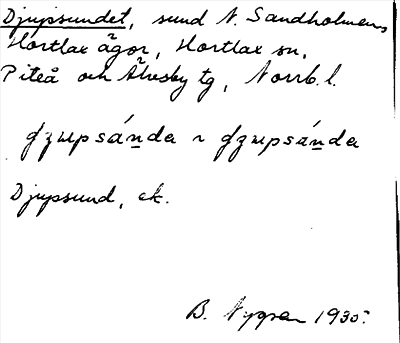 Djupsundet, sund N. Sandholmens
Hortlax ägor, Hortlax sn,
Piteå och Älvsby tg, Norrb. l.
Djupsund, ek.
B. Nygren 1930.